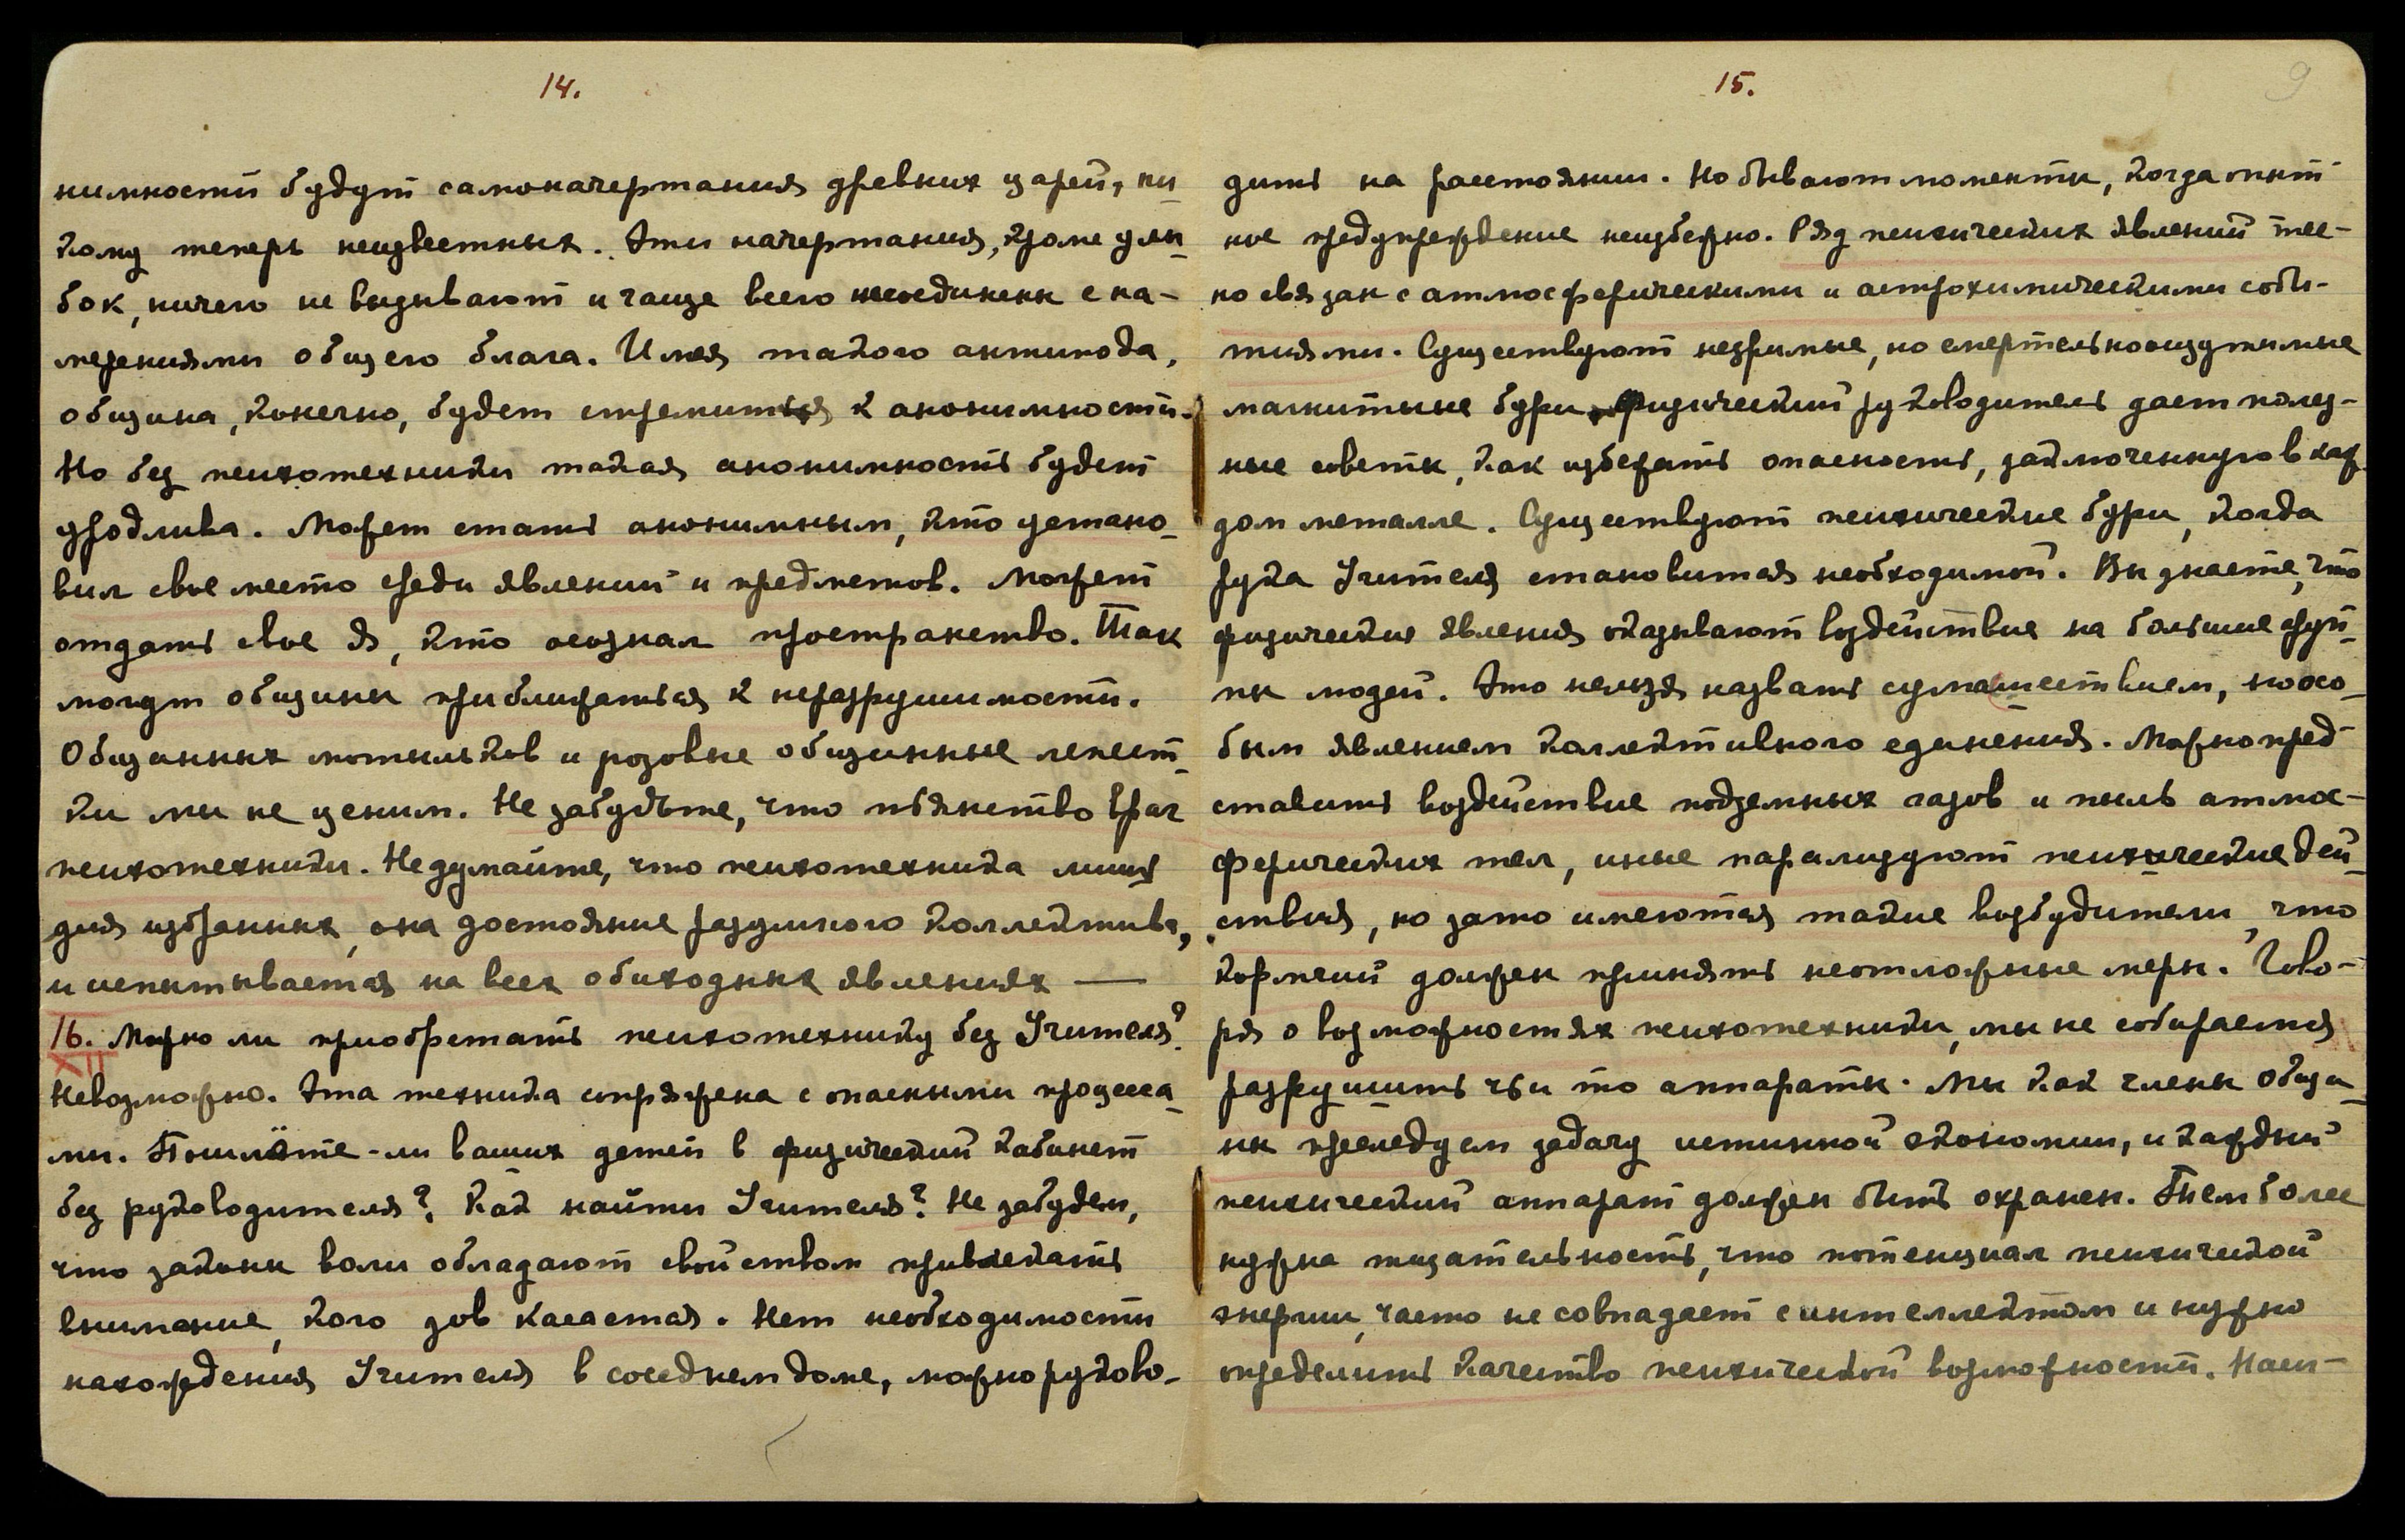 14.
нимности будут самоначертания древних царей, ни
кому теперь неизвестных. Эти начертания, кроме улы
бок, ничего не вызывают и чаще всего несоединены с на-
мерениями общего блага. Имея такого антипода,
община, конечно, будет стремиться к анонимности.
Но без психотехники такая анонимность будет
уродлива. Может стать анонимным, кто устано
вил свое место среди явлений и предметов. Может
отдать свое Я, кто осознал пространство. Так
могут общины приближаться к неразрушимости.
Общинных мотыльков и розовые общинные лепест
ки мы не ценим. Не забудьте, что пьянство враг
психотехники. Не думайте, что психотехника лишь
для избранных, она достояние разумного коллектива,
и испытывается на всех обиходных явлениях —
16. Можно ли приобретать психотехнику без Учителя?
XII
Невозможно. Эта техника сопряжена с опасными процесса
ми. Пошлёте-ли ваших детей в физический кабинет
без руководителя? Как найти Учителя? Не забудем,
что законы воли обладают свойством привлекать
внимание, кого зов касается. Нет необходимости
нахождения Учителя в соседнем доме, можно руково-
15.
9
дить на расстоянии. Но бывают моменты, когда опыт
ное предупреждение неизбежно. Ряд психических явлений тес-
но связан с атмосферическими и астрохимическими собы-
тиями. Существуют незримые, но смертельноощутимые
магнитные бури, физический руководитель дает полез-
ные советы, как избежать опасность, заключенную в каж
дом металле. Существуют психические бури, когда
рука Учителя становится необходимой. Вы знаете, что
физические явления оказывают воздействие на большие груп
пы людей. Это нельзя назвать сумашествием, но осо
бым явлением коллективного единения. Можно пред
ставить воздействие подземных газов и пыль атмос-
ферических тел, иные парализуют психические дей
ствия, но зато имеются такие возбудители, что
кормчий должен принять неотложные меры. Гово-
ря о возможностях психотехники, мы не собираемся
разрушить чьи то аппараты. Мы как члены общи
ны преследуем задачу истинной экономии, и каждый
психический аппарат должен быть охранен. Тем более
нужна тщательность, что потенциал психической
энергии, часто не совпадает с интеллектом и нужно
определить качество психической возможности. Наси-